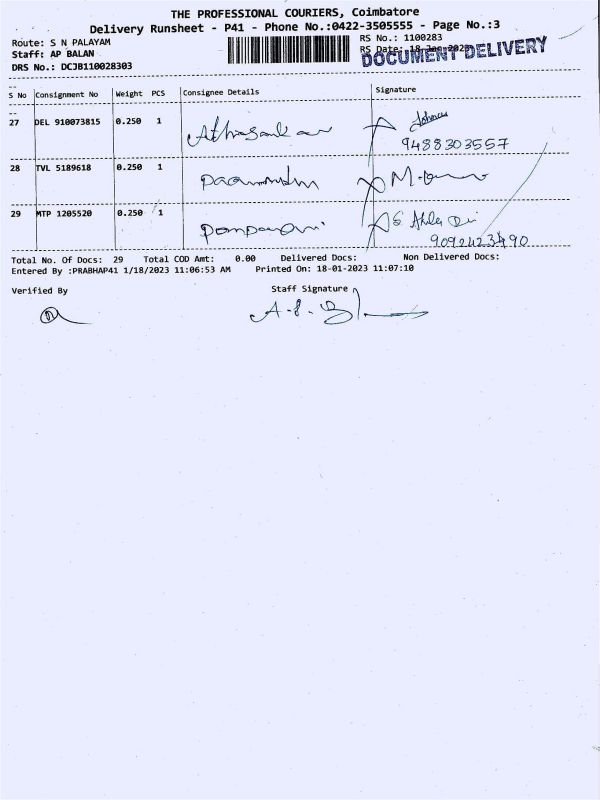 THE PROFESSIONAL COURIERS, Coimbatore
Delivery Runsheet - P41 - Phone No.:0422-3505555 - Page No.:3
Route: S N PALAYAM
Staff: AP BALAN
DRS No.: DCJB110028303
RS No.: 1100283
RS Date: 18 Jan 2023
DOCUMENT DELIVERY
S No Consignment No Weight PCS Consignee Details Signature
27 DEL 910073815 0.250 1
9488303557
28 TVL 5189618 0.250 1
29 MTP 1205520 0.250 1
9092423490
Total No. Of Docs: 29 Total COD Amt: 0.00 Delivered Docs: Non Delivered Docs:
Entered By :PRABHAP41 1/18/2023 11:06:53 AM Printed On: 18-01-2023 11:07:10
Verified By Staff Signature